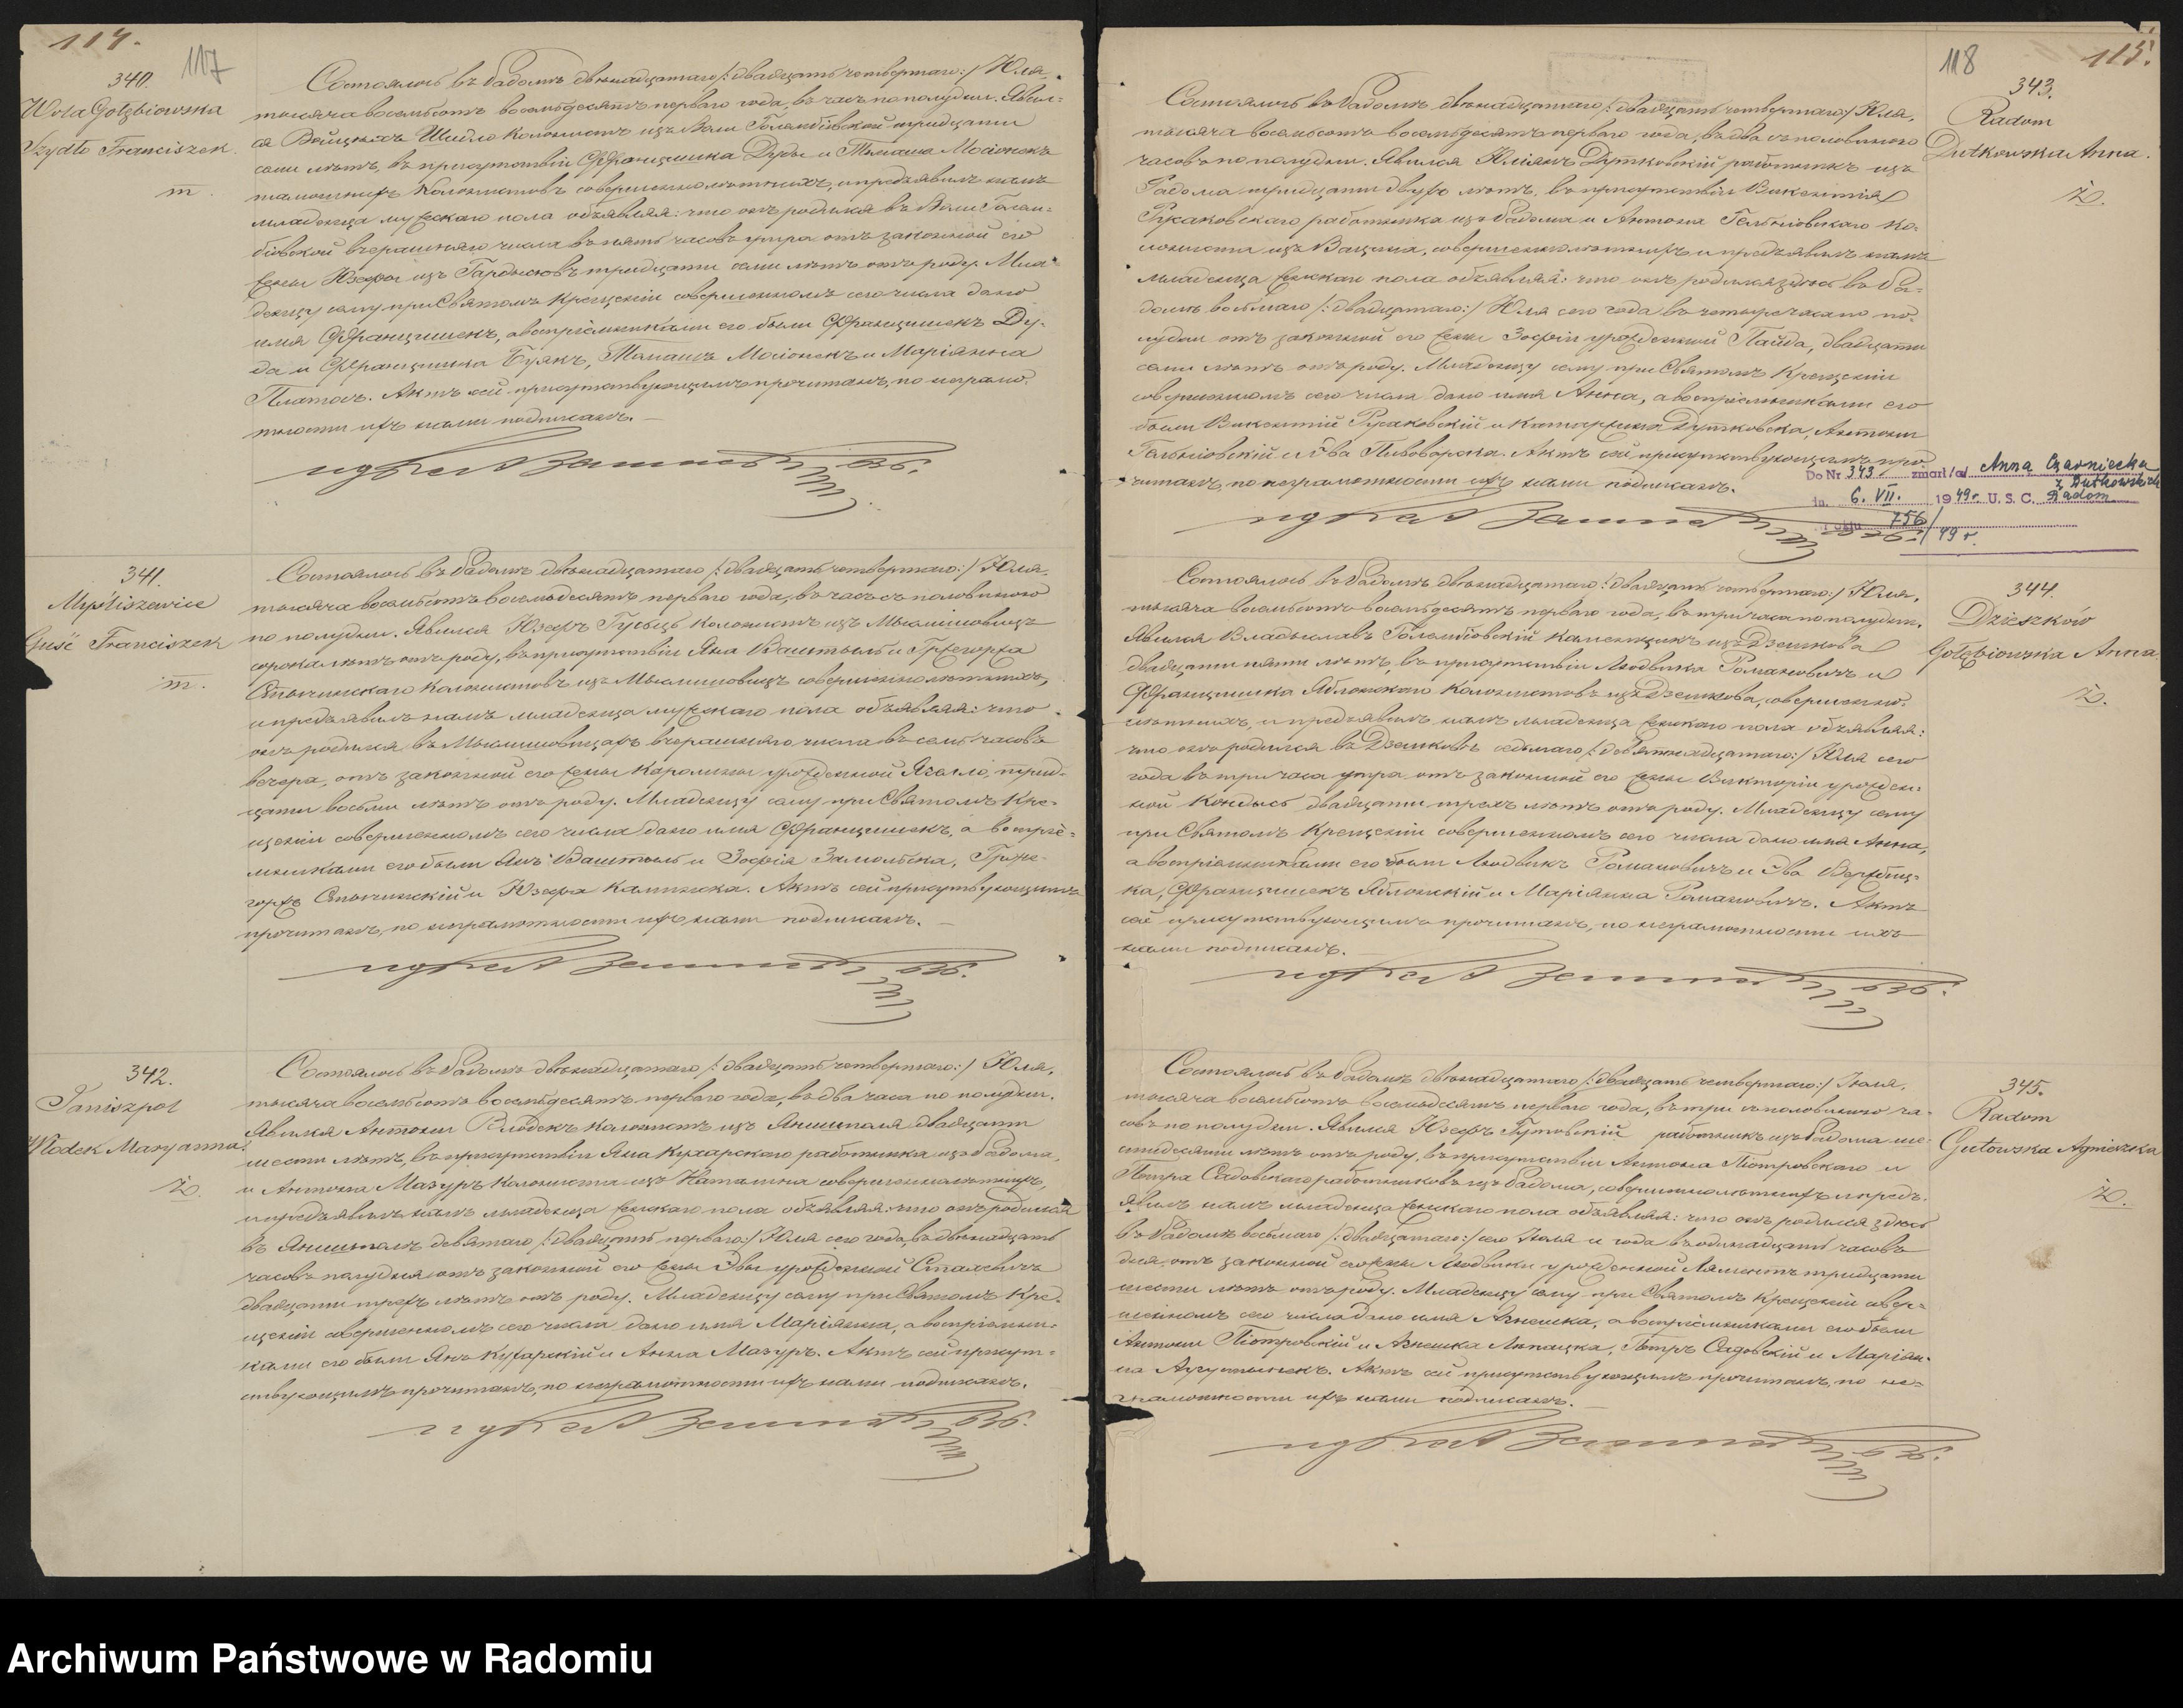 114.
117
340.
Wola Gołębiowska
Szydło Franciszek.
m.
Состоялось въ Радомѣ двѣнадцатаго /: двадцать четвертаго :/ Юля,
тысяча восемьсотъ восемьдесятъ перваго года, въ часъ по полудни. Явил-
ся Войцехъ Шидло колонистъ изъ Воли Голембіовской тридцати
семи лѣтъ, въ присутствіи Францишка Дуды и Томаша Мосіонекъ
тамошнихъ колонистовъ совершеннолѣтнихъ, и предъявилъ намъ
младенца мужескаго пола объявляя: что онъ родился въ Воли Голем-
біовской вчерашняго числа въ пять часовъ утра отъ законной его
жены Юзефы изъ Гардысовъ тридцати семи лѣтъ отъ роду. Мла-
денцу сему при Святомъ Крещеніи совершенномъ сего числа дано
имя Францишекъ, а воспріемниками его были Францишекъ Ду-
да и Францишка Буякъ, Томашъ Мосіонекъ и Маріянна
Платосъ. Актъ сей присутствующимъ прочитанъ, по неграмот-
ности ихъ нами подписанъ.
341.
Myśliszewice
Guść Franciszek
m.
Состоялось въ Радомѣ двѣнадцатаго /: двадцать четвертаго :/ Юля,
тысяча восемьсотъ восемьдесятъ перваго года, въ часъ съ половиною
по полудни. Явился Юзефъ Гусьць колонистъ изъ Мыслишовицъ
сорока лѣтъ отъ роду, въ присутствіи Яна Ваштыль и Гржегоржа
Стычинскаго колонистовъ изъ Мыслишовицъ совершеннолѣтнихъ,
и предъявилъ намъ младенца мужескаго пола объявляя: что
онъ родился въ Мыслишовицахъ вчерашняго числа въ семь часовъ
вечера, отъ законной его жены Каролины урожденной Ягелло, трид-
цати восьми лѣтъ отъ роду. Младенцу сему при Святомъ Кре-
щеніи совершенномъ сего числа дано имя Францишекъ, а воспріе-
мниками его были Янъ Ваштыль и Зофія Замольска, Грже-
горжъ Стычинскій и Юзефа Калинска. Актъ сей присутствующимъ
прочитанъ, по неграмотности ихъ нами подписанъ.
342.
Janiszpol
Włodek Maryanna.
ż.
Состоялось въ Радомѣ двѣнадцатаго /: двадцать четвертаго :/ Юля,
тысяча восемьсотъ восемьдесятъ перваго года, въ два часа по полудни.
Явился Антони Влодекъ колонистъ изъ Янишполя двадцати
шести лѣтъ, въ присутствіи Яна Кухарскаго работника изъ Радома,
и Антона Мазуръ колониста изъ Наталина совершеннолѣтнихъ,
и предъявилъ намъ младенца женскаго пола объявляя: что онъ родился
въ Янишполѣ девятаго /: двадцать перваго :/ Юля сего года, въ двѣнадцать
часовъ полудня отъ законной его жены Эвы урожденной Сталевичъ
двадцати трехъ лѣтъ отъ роду. Младенцу сему при Святомъ Кре-
щеніи совершенномъ сего числа дано имя Маріянна, а воспріемни-
ками его были Янъ Кухарскій и Анна Мазуръ. Актъ сей присут-
ствующимъ прочитанъ, по неграмотности ихъ нами подписанъ.
118
115.
343.
Radom
Dutkowska Anna.
ż.
Состоялось въ Радомѣ двѣнадцатаго /: двадцать четвертаго :/ Юля,
тысяча восемьсотъ восемьдесятъ перваго года, въ два съ половиною
часовъ по полудни. Явился Юліянъ Дутковскій работникъ изъ
Радома тридцати двухъ лѣтъ, въ присутствіи Викентія
Русаковскаго работника изъ Радома и Антона Гельніовскаго ко-
лониста изъ Вацина, совершеннолѣтнихъ и предъявилъ намъ
младенца женскаго пола объявляя: что онъ родился здѣсь въ Ра-
домѣ восьмаго /: двадцатаго :/ Юля сего года въ четыре часа по по-
лудни отъ законной его жены Зофіи урожденной Пайда, двадцати
семи лѣтъ отъ роду. Младенцу сему при Святомъ Крещеніи
совершенномъ сего числа дано имя Анна, а воспріемниками его
были Викентій Русаковскій и Катаржина Дутковска, Антони
Гельніовскій и Эва Пивоварска. Актъ сей присутствующимъ про-
читанъ, по неграмотности ихъ нами подписанъ.
Do Nr 343 zmarł /a/ Anna Czarniecka
z Dutkowskich
dn. 6. VII. 1949 r. U. S. C. Radom
Nr aktu 756/49 r.
344.
Dzieszków
Gołębiowska Anna
ż.
Состоялось въ Радомѣ двѣнадцатаго /: двадцать четвертаго :/ Юля,
тысяча восемьсотъ восемьдесятъ перваго года, въ три часа по полудни.
Явился Владыславъ Голембіовскій каменщикъ изъ Дзешкова
двадцати пяти лѣтъ, въ присутствіи Людвика Романовичъ и
Францишка Яблонскаго колонистовъ изъ Дзешкова, совершенно-
лѣтнихъ, и предъявилъ намъ младенца женскаго пола объявляя:
что онъ родился въ Дзешковѣ седьмаго /: девятнадцатаго :/ Юля сего
года въ три часа утра отъ законной его жены Викторіи урожден-
ной Кондысь двадцати трехъ лѣтъ отъ роду. Младенцу сему
при Святомъ Крещеніи совершенномъ сего числа дано имя Анна,
а воспріемниками его были Людвикъ Романовичъ и Эва Вержбиц-
ка, Францишекъ Яблонскій и Маріянна Романовичъ. Актъ
сей присутствующимъ прочитанъ, по неграмотности ихъ
нами подписанъ.
345.
Radom
Gutowska Agnieszka
ż.
Состоялось въ Радомѣ двѣнадцатаго /: двадцать четвертаго :/ Юля,
тысяча восемьсотъ восемьдесятъ перваго года, въ три съ половиною ча-
совъ по полудни. Явился Юзефъ Гутовскій работникъ изъ Радома ше-
стидесяти лѣтъ отъ роду, въ присутствіи Антона Піотровскаго и
Петра Садовскаго работниковъ изъ Радома, совершеннолѣтнихъ и предъ-
явилъ намъ младенца женскаго пола объявляя: что онъ родился здѣсь
въ Радомѣ восьмаго /: двадцатаго :/ сего Юля и года въ одинадцать часовъ
дня, отъ законной его жены Людвики урожденной Ляментъ тридцати
шести лѣтъ отъ роду. Младенцу сему при Святомъ Крещеніи совер-
шенномъ сего числа дано имя Агнешка, а воспріемниками его были
Антони Піотровскій и Агнешка Липацка, Петръ Садовскій и Маріян-
на Аугустынекъ. Актъ сей присутствующимъ прочитанъ, по не-
грамотности ихъ нами подписанъ.
Archiwum Państwowe w Radomiu